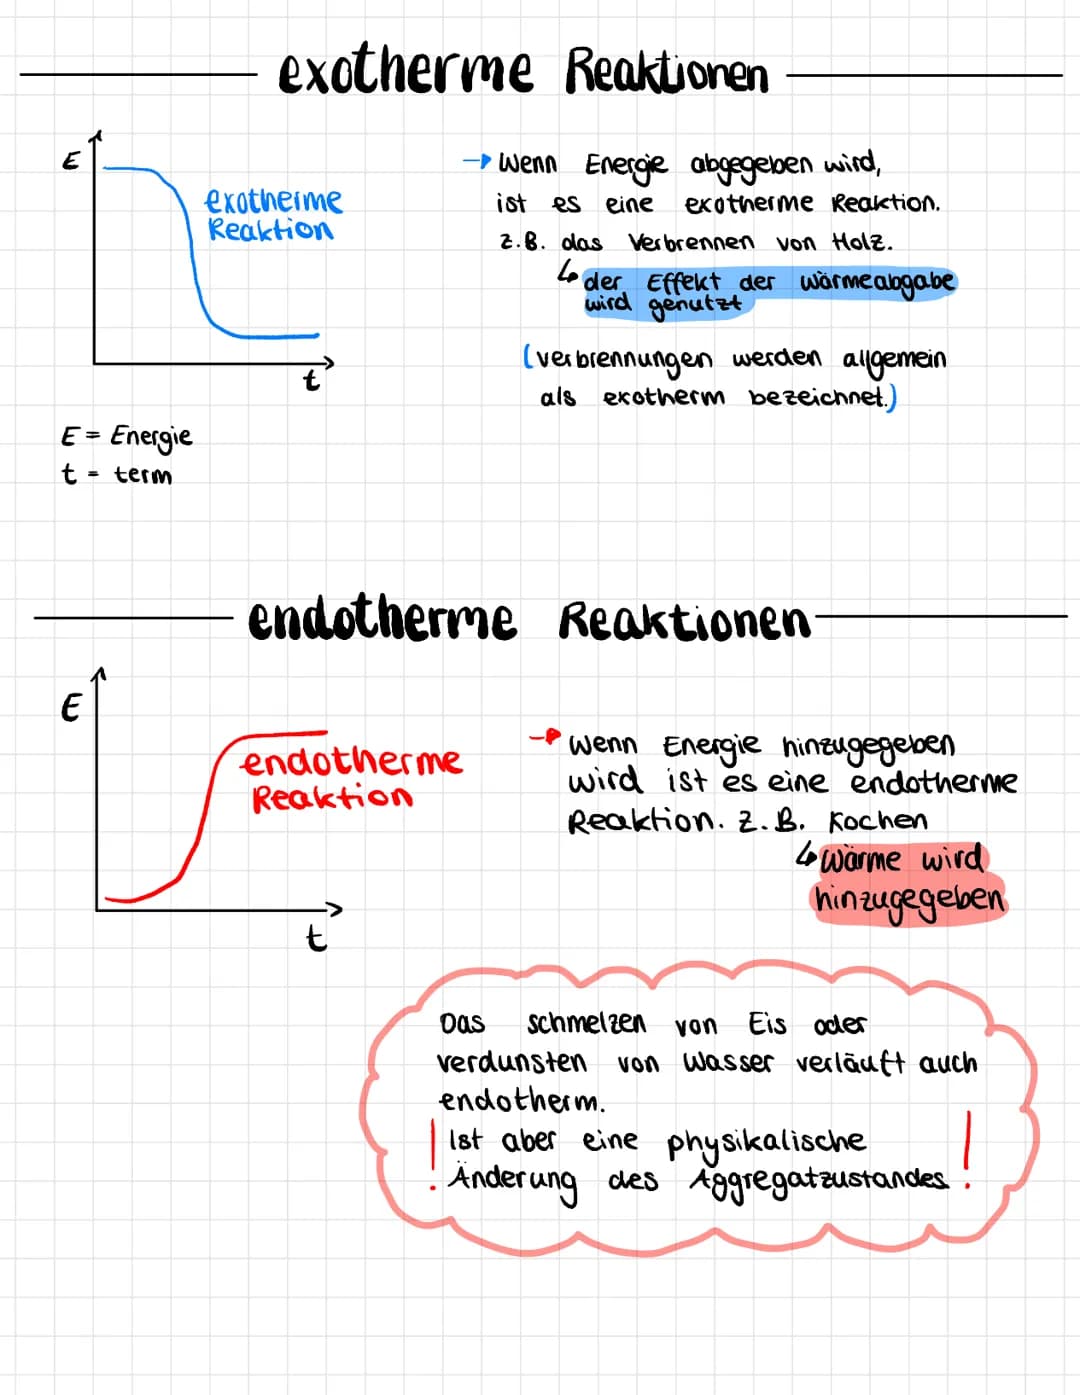 exotherme Reaktionen
E
exotherme
Reaktion
t
E = Energie
t = term
→ Wenn Energie abgegeben wird,
ist es eine exotherme Reaktion.
z.B. das Verbrennen von Holz.
↳ der Effekt der Wärmeabgabe
wird genutzt
(Verbrennungen werden allgemein
als exotherm bezeichnet.)
endotherme Reaktionen
E
endotherme
Reaktion
t
→ Wenn Energie hinzugegeben
wird ist es eine endotherme
Reaktion. z.B. Kochen
↳ Wärme wird
hinzugegeben
Das schmelzen von Eis oder
verdunsten von Wasser verläuft auch
endotherm.
! Ist aber eine physikalische
Änderung des Aggregatzustandes !